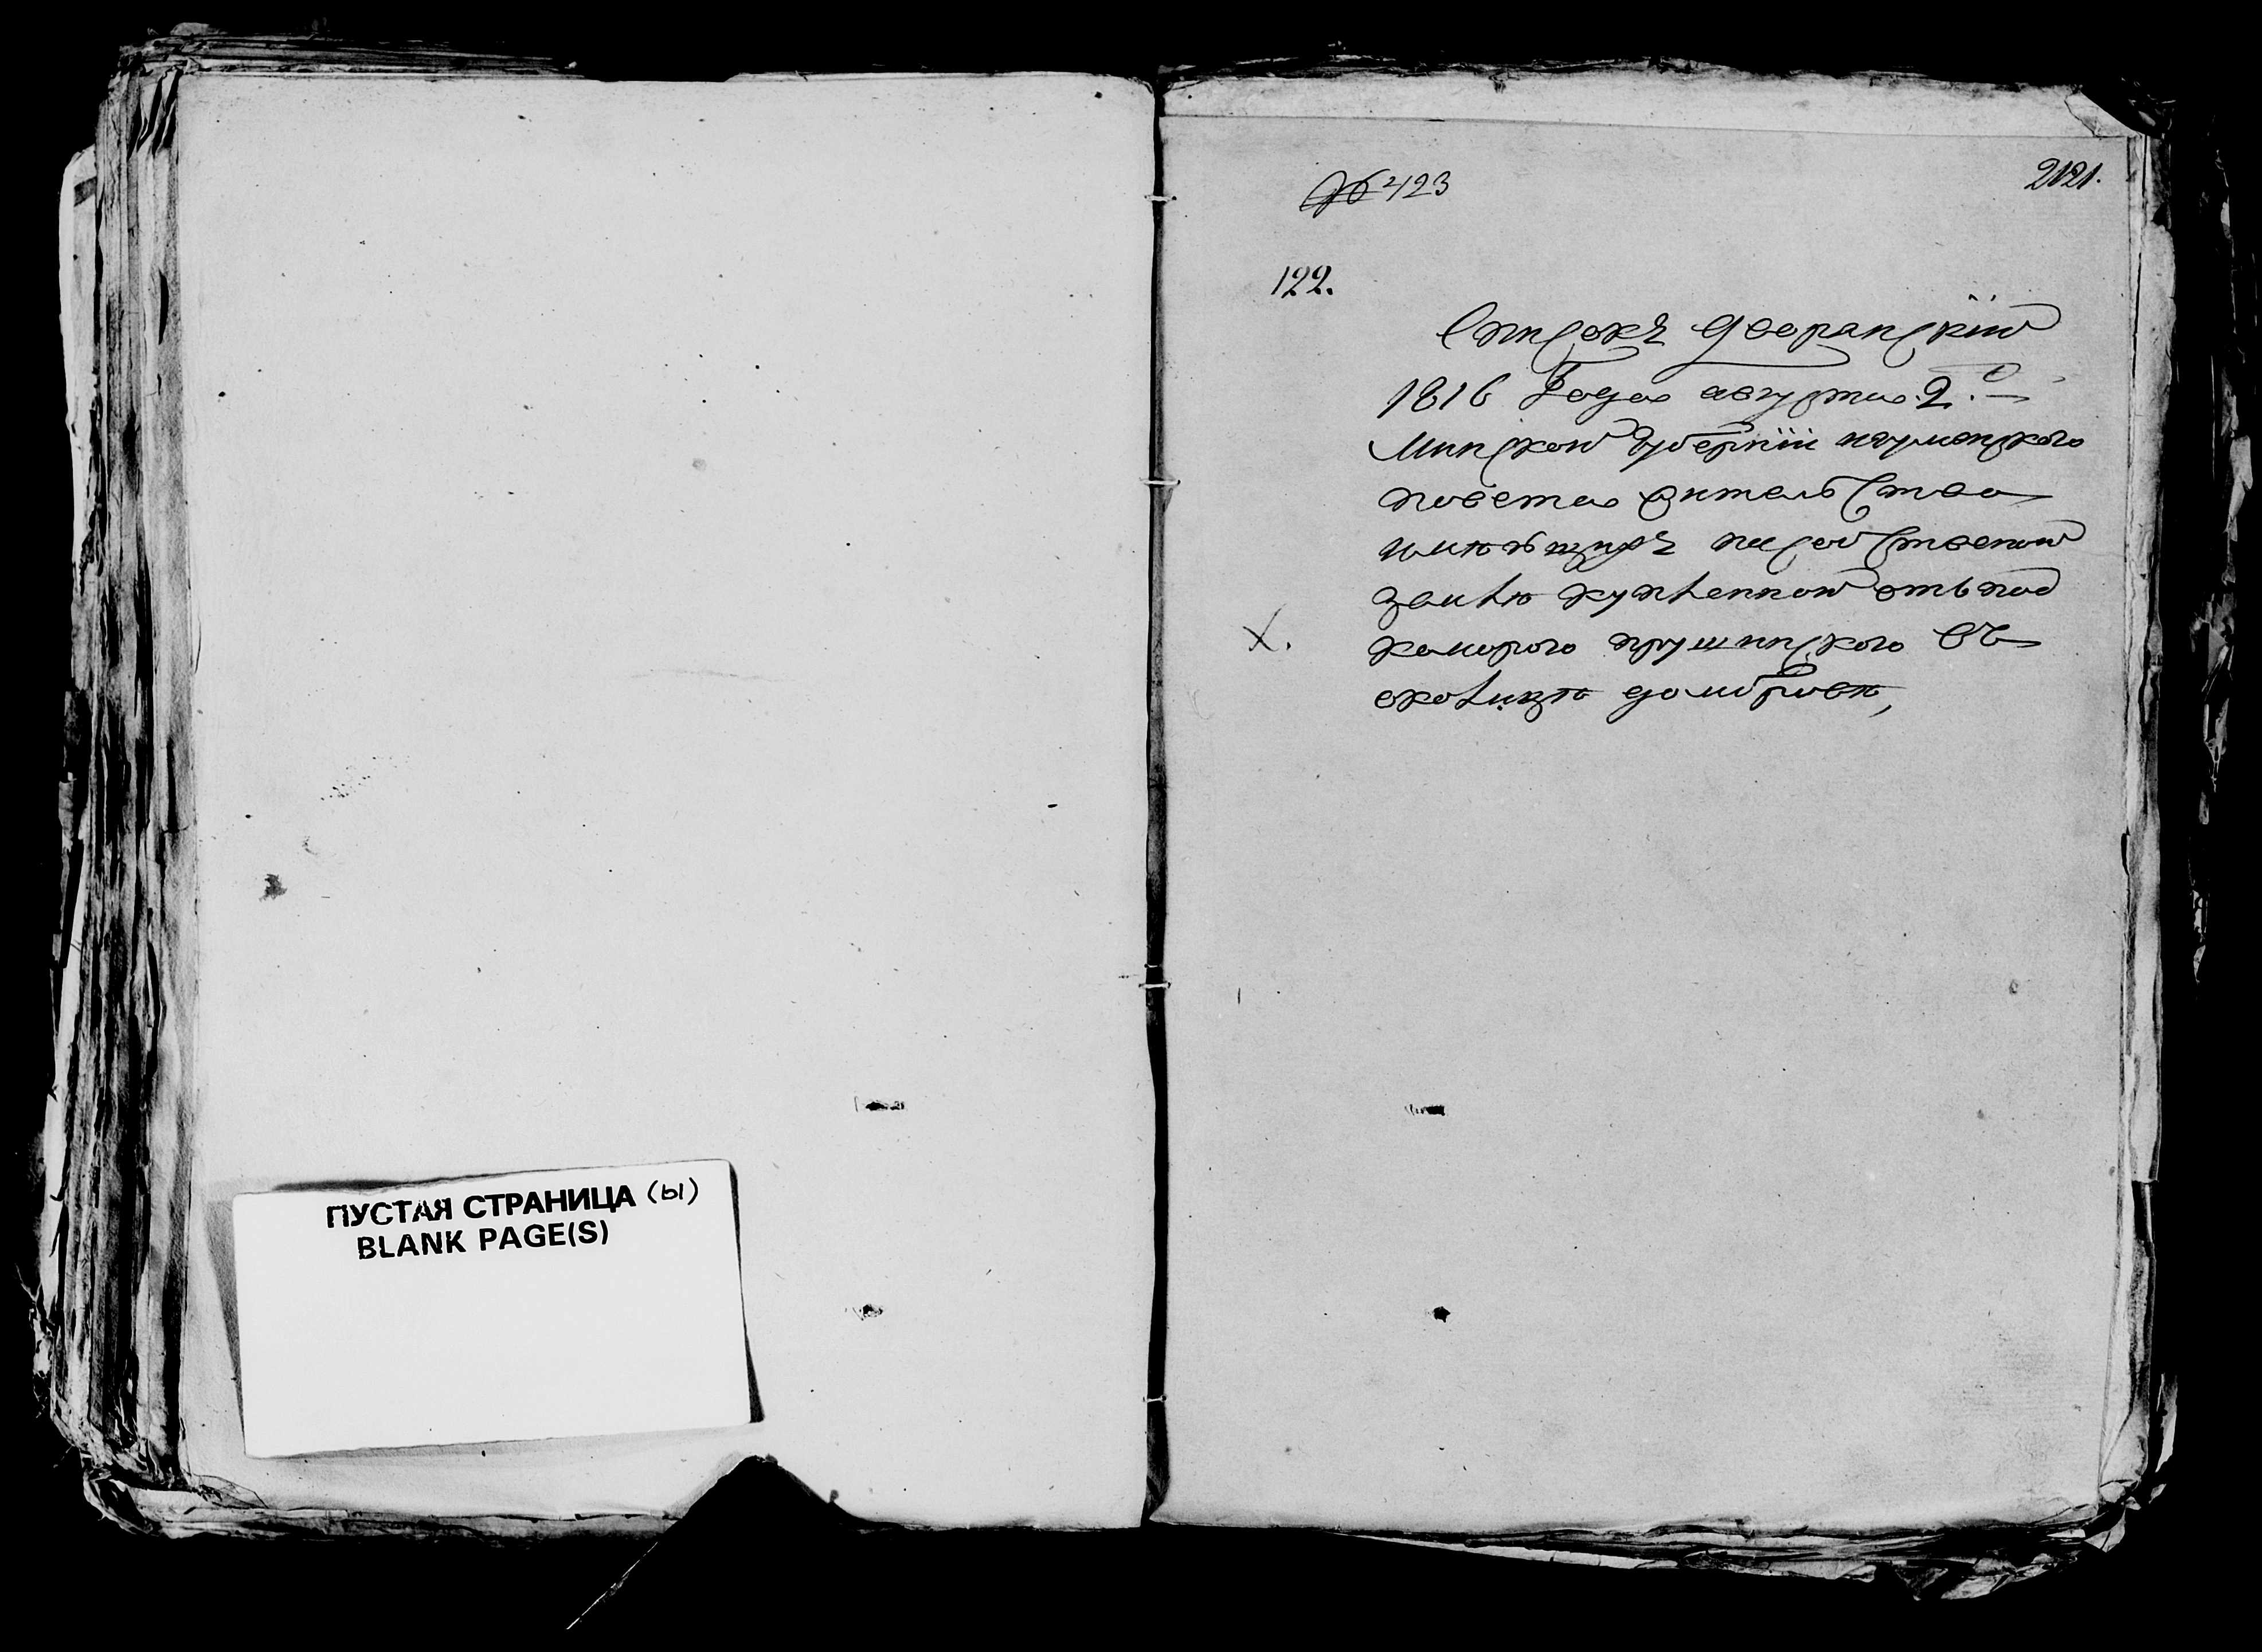 ПУСТАЯ СТРАНИЦА (ы)
BLANK PAGE(S)
423
2121.
122.
Список дворанский
1816 Года августа 2.
Минской Губернии игуменского
повета жительства
имеющих на собственой
земле купленной отъ под
коморого прушинского въ
околице домброве,
X.